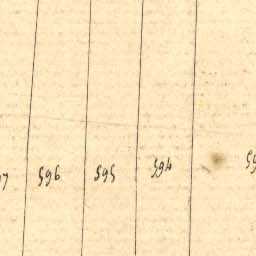 596 595 594